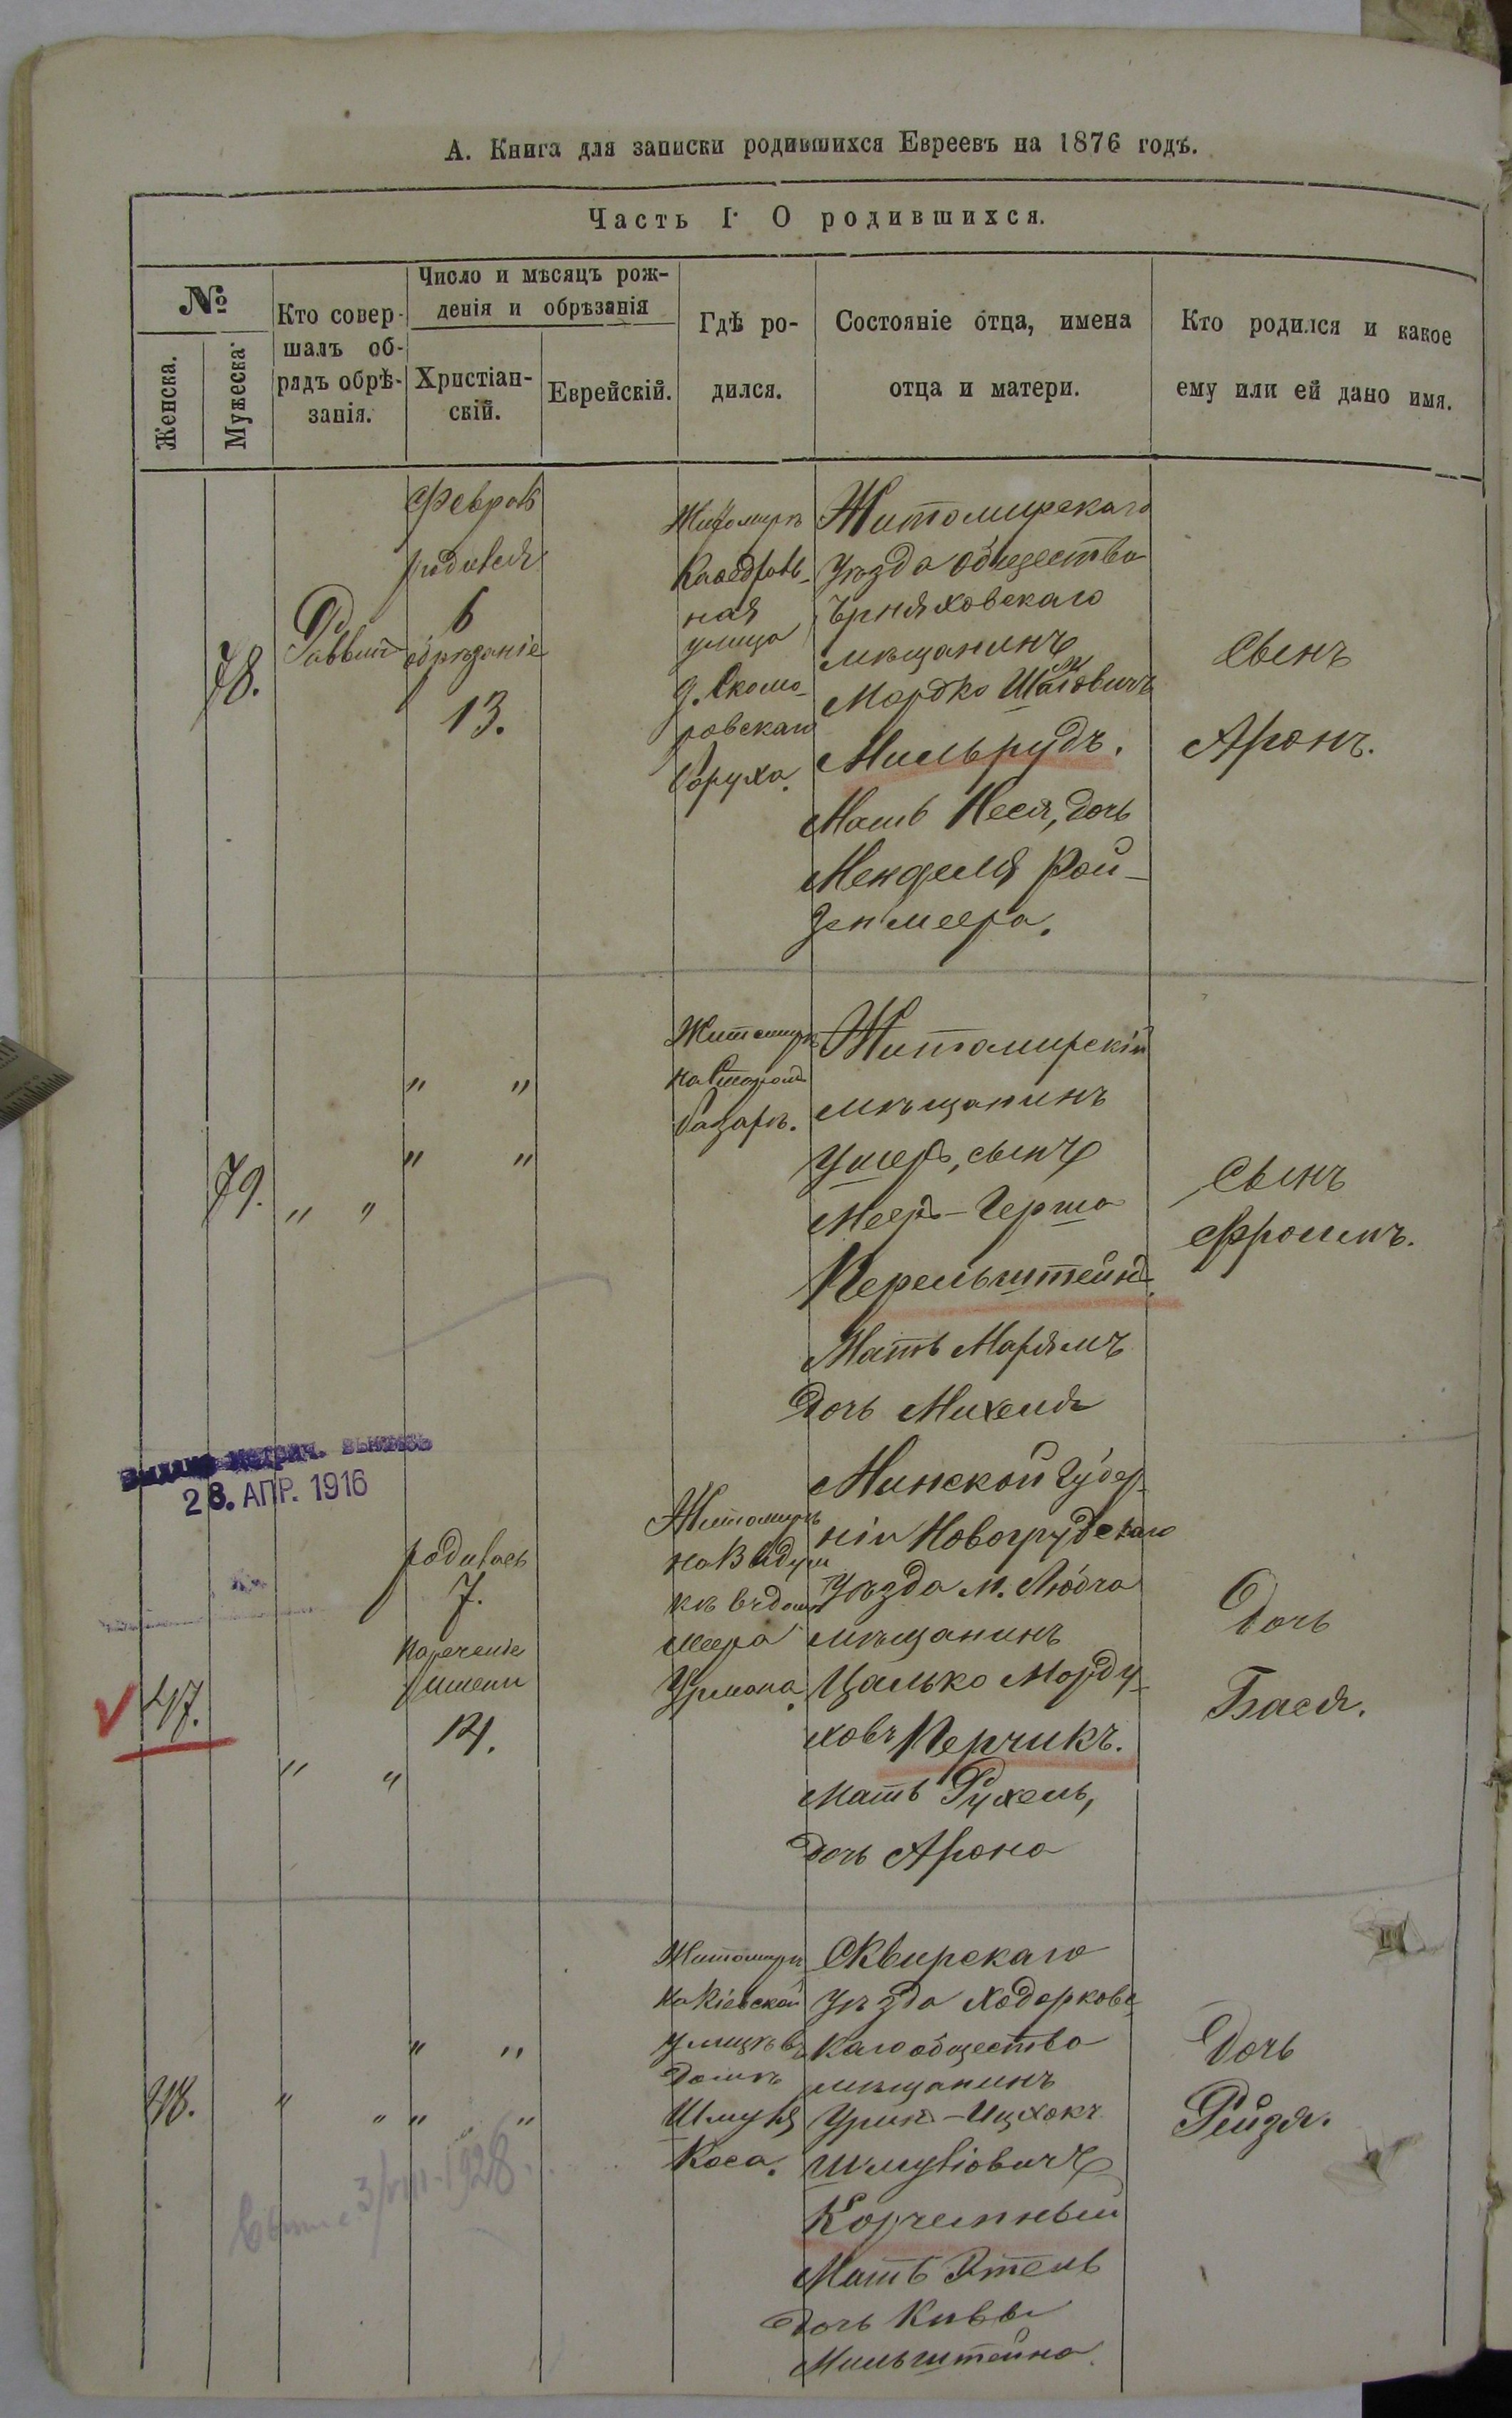 А. Книга для записки родившихся Евреевъ на 1876 годъ.
Часть I. О родившихся.
№
Женска.
Мужеска
Кто совер-
шалъ об-
рядъ обрѣ-
занія.
Число и мѣсяцъ рож-
денія и обрѣзанія
Христіан-
скій.
Еврейскій.
Гдѣ ро-
дился.
Состояніе отца, имена
отца и матери.
Кто родился и какое
ему или ей дано имя.
78.
Раввинъ
Февраль
родился
6
обрѣзаніе
13.
Житомиръ
Каѳедраль-
ная
улица
д. Скомо-
ровскаго
Боруха.
Житомирскаго
уѣзда общества
Черняховскаго
мѣщанинъ
Мордко
Мильрудъ.
Мать Неся, дочь
Менделя Рой-
зенмеера.
Сынъ
Аронъ.
79.
" "
" "
" "
Житомиръ
на Старомъ
базарѣ.
Житомирскій
мѣщанинъ
Ушеръ, сынъ
Меера-Герша
Перельштейнъ.
Мать Марямъ
дочь Михеля
Сынъ
Фроимъ.
Выдана метрич. выпись
28. АПР. 1916
47.
" "
родилась
7.
нареченіе
имени
14.
Житомиръ
на
въ домѣ
Меера
Урмана.
Минской Губер-
ніи Новогрудскаго
уѣзда м. Любча
мѣщанинъ
Цалько Морду-
ховъ Перчикъ.
Мать Рухель,
дочь Арона
Дочь
Бася.
48.
" "
" "
" "
Житомиръ
на Кіевской
улицѣ въ
домѣ
Шмуля
Коса.
Сквирскаго
уѣзда Ходорковс-
каго общества
мѣщанинъ
Урин-Ицхокъ
Шмуліовичъ
Корчемный
Мать Этель
дочь Кивы
Мильштейна.
Дочь
Рейзя.
3/VIII-1928.